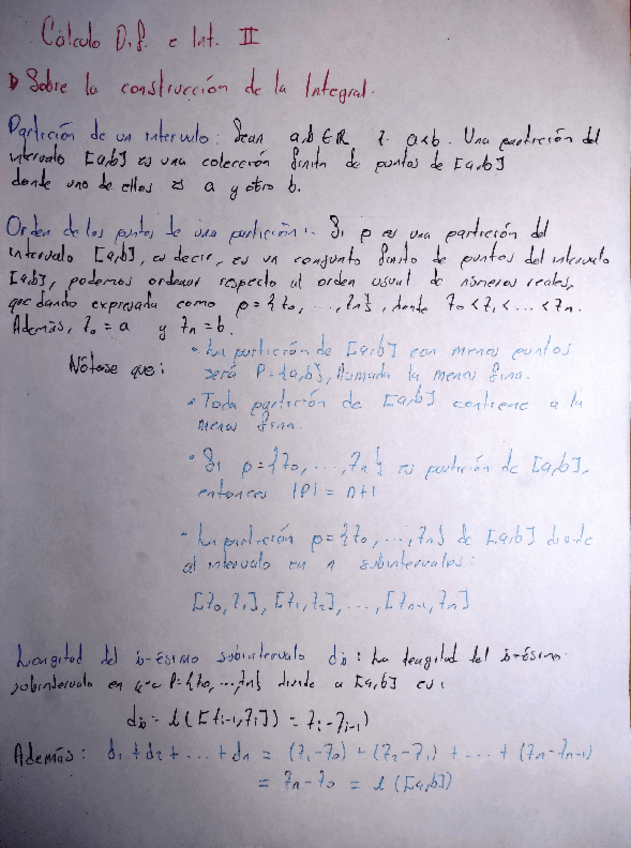 Cálculo Dif. e Int. II
Sobre la construcción de la Integral.
Partición de un intervalo: Sean a,b ∈ ℝ, t. a<b. Una partición del
intervalo [a,b] es una colección finita de puntos de [a,b]
donde uno de ellos es a y otro b.
Orden de los puntos de una partición: Si p es una partición del
intervalo [a,b], es decir, es un conjunto finito de puntos del intervalo
[a,b], podemos ordenar respecto al orden usual de números reales,
quedando expresada como p={t0, ..., tn}, donde t0 < t1 < ... < tn.
Además, t0 = a y tn = b.
Nótese que:
• La partición de [a,b] con menos puntos
será P={a,b}, llamada la menos fina.
• Toda partición de [a,b] contiene a la
menos fina.
• Si p={t0, ..., tn} es partición de [a,b],
entonces |P| = n+1
• La partición p={t0, ..., tn} de [a,b] divide
al intervalo en n subintervalos:
[t0,t1], [t1,t2], ..., [tn-1,tn]
Longitud del i-ésimo subintervalo di: La longitud del i-ésimo
subintervalo en que P={t0, ..., tn} divide a [a,b] es:
di = l([ti-1,ti]) = ti - ti-1)
Además: d1 + d2 + ... + dn = (t1-t0) + (t2-t1) + ... + (tn-tn-1)
= tn - t0 = l([a,b])